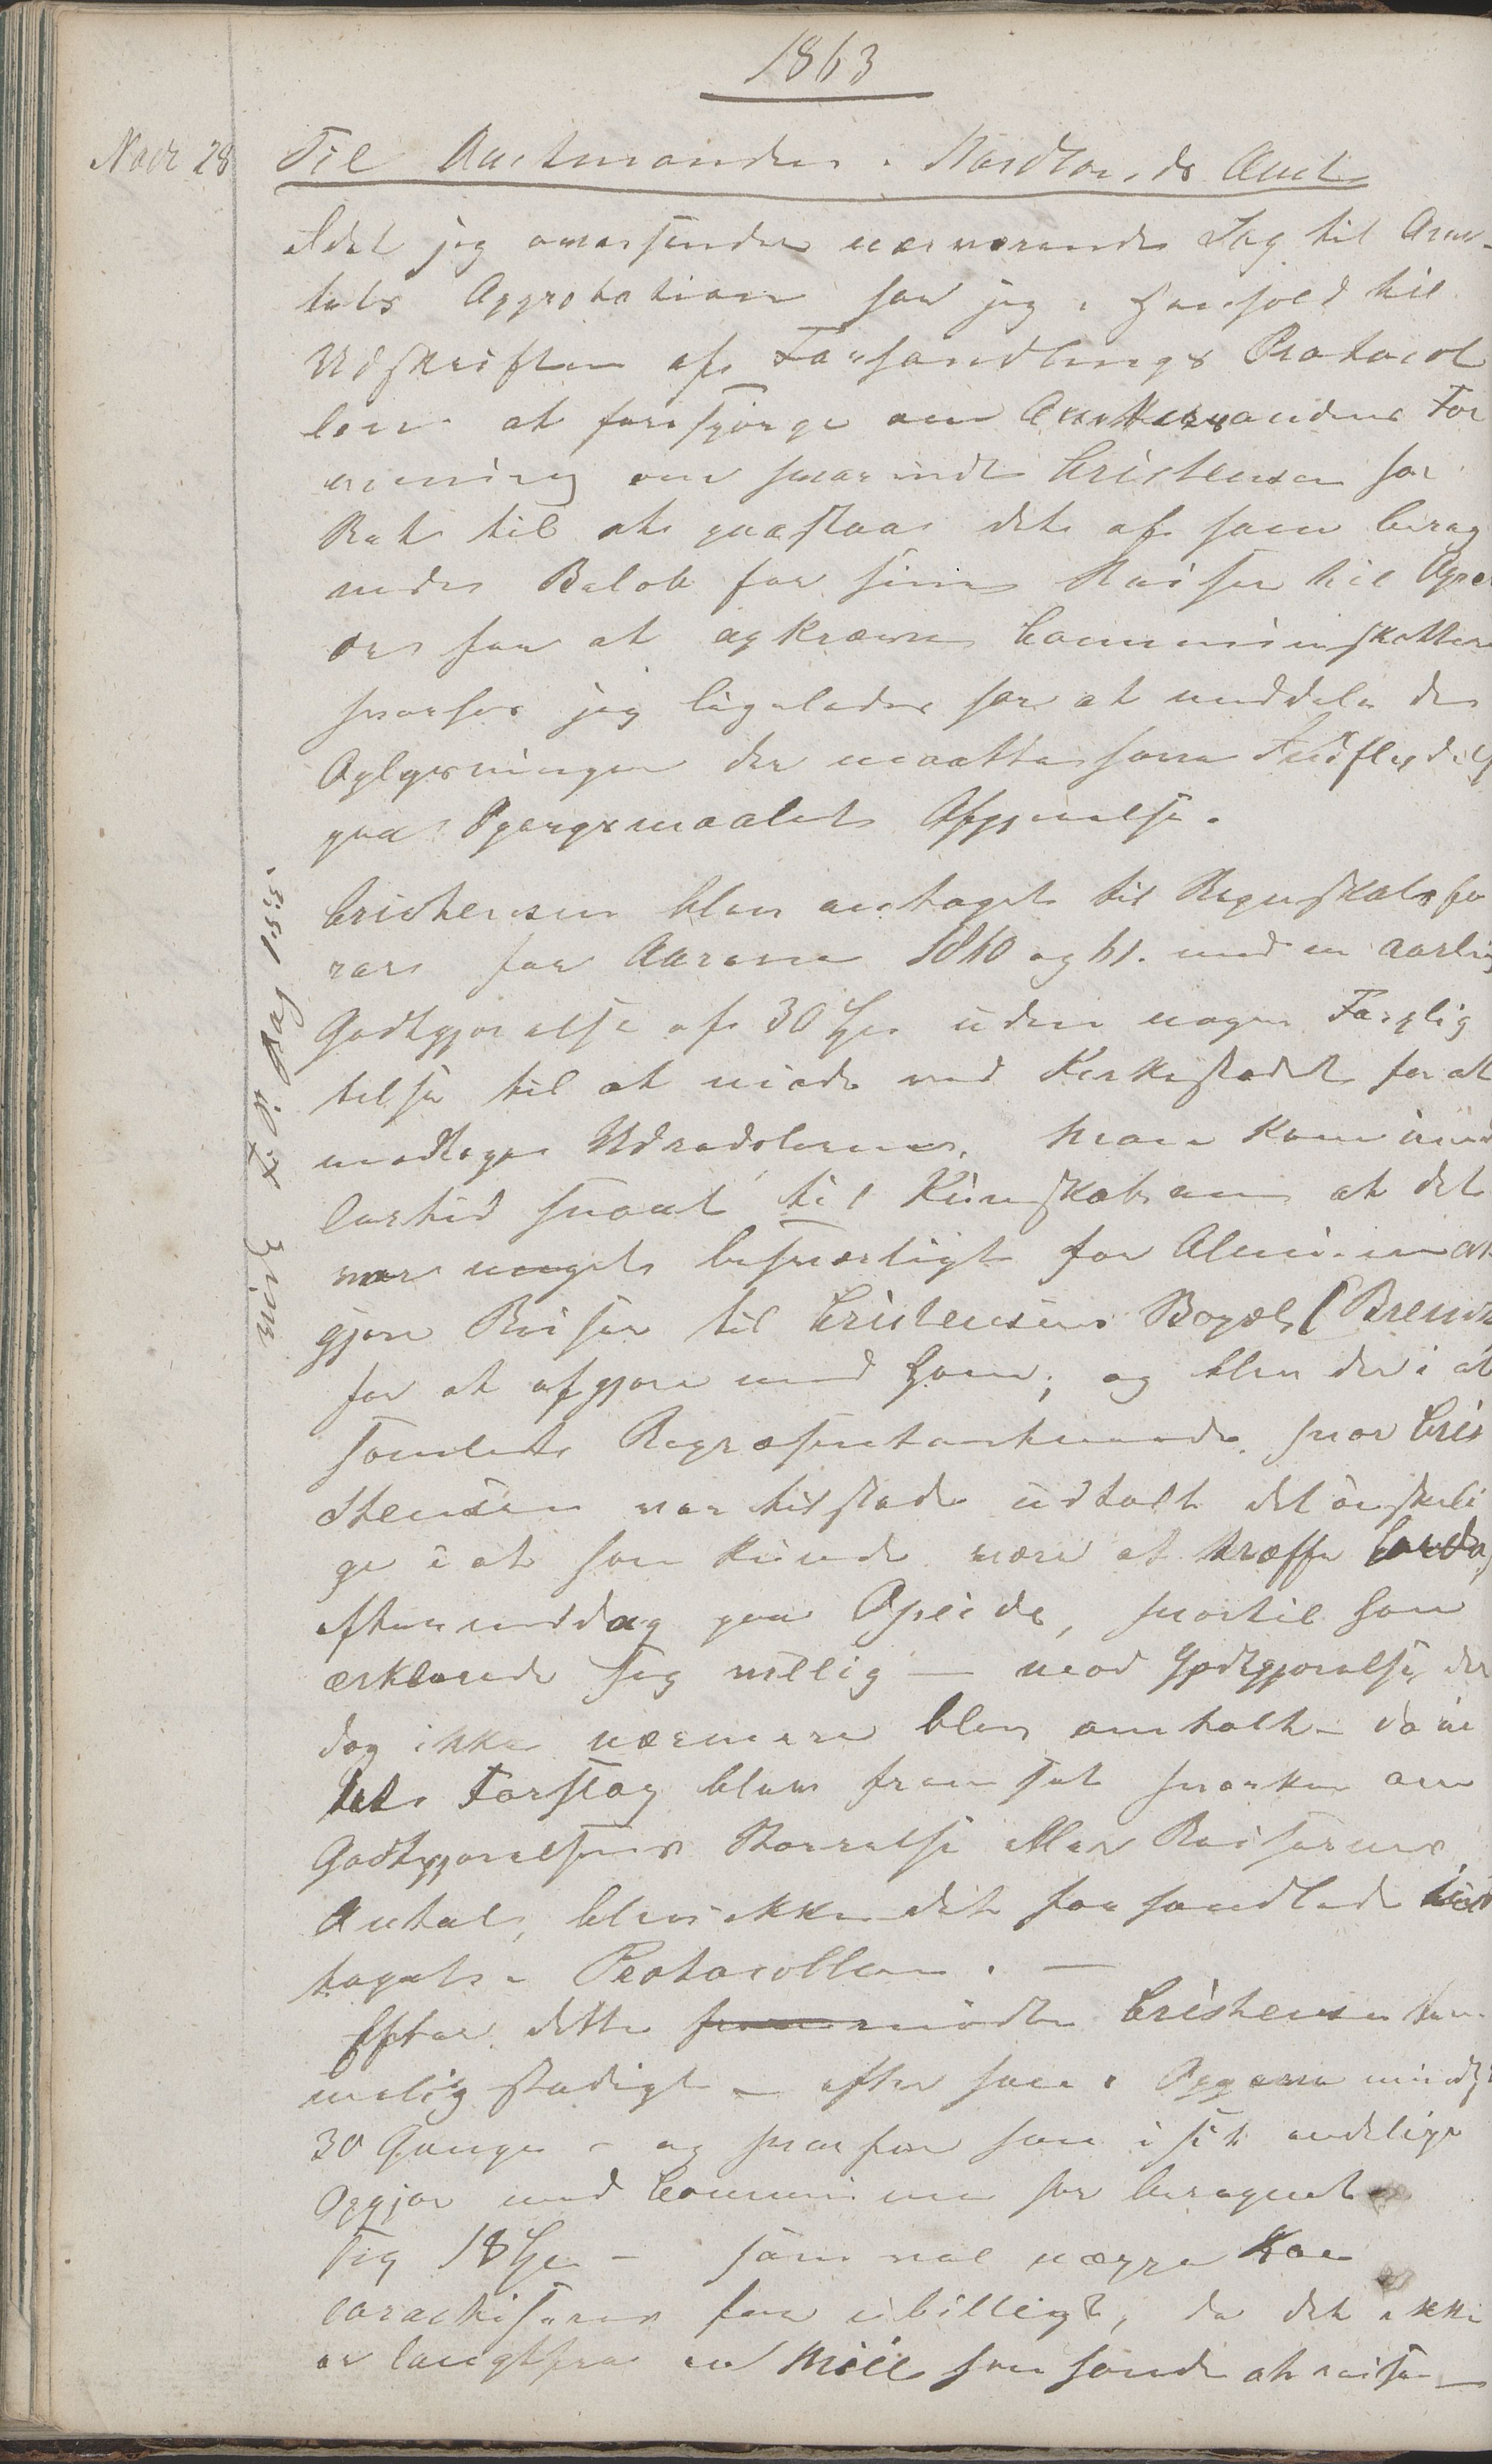 1863
Novbr 28
Til Amtmanden i Nordlands Amt
Idet jeg oversender nærværende Sag til Am-
tets Approbation har jeg i Henhold til
Udskriften af Forhandlings Protocol
len at forespørge om Amtmandens For
mening om hvorvidt Cristensen har
Ret til at paastaa det af ham bereg
nede Beløb for sine Reiser til Opei
de for at opkræve Communeskatten
hvorfor jeg ligeledes har at meddele de
Oplysninger der maatte have Indflydelse
paa Spørgsmaalets Afgjørelse.
Cristensen blev antaget til Regnskabsfø
rer for Aarene 1860 og 61. med en aarlig
Godtgjørelse af 30 Spd uden nogen Forplig
telse til at møde ved Kirkestedet for at
modtage Udredslerne. Man kom imid
lertid snart til Kundskab om at det
var meget besværligt for Almuen at
gjøre Reiser til Cristensens Bopæl (Brennvik
for at afgjøre med ham; og blev der i et
samlet Repræsentantmøde hvor Cris
stensen var tilstede udtalt det ønskeli
ge i at han kunde være at træffe Lørdag
eftermiddag paa Opeide, hvortil han
erklærede sig villig — mod Godtgjørelse, der
dog ikke nærmere blev omtalt — da in
tet Forslag blev fremsat hverken om
Godtgjørelsens Størrelse eller Reisernes
Antal, blev ikke det forhandlede ind
taget i Protocollen. —
Efter dette mødte Cristensen tem
melig stadigt — efter hans Opgave mindst
30 Gange — og hvorfor han i sit endelige
Opgjør med Communen har beregnet
sig 18 Spd — som vel neppe kan
carachiseres for ubilligt, da det ikke
er langtfra en Miil han havde at reise —